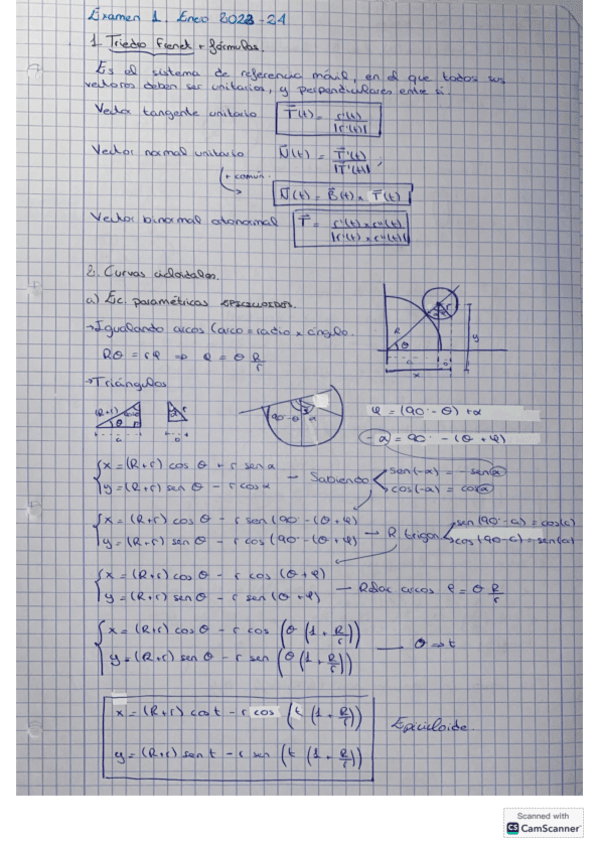 Examen 1. Enero 2023-24
1. Triedro Frenet + fórmulas.
Es el sistema de referencia móvil, en el que todos sus
vectores deben ser unitarios, y perpendiculares entre si.
Vector tangente unitario T(t) = r'(t) / |r'(t)|
Vector normal unitario N(t) = T'(t) / |T'(t)|,
+ común
N(t) = B(t) x T(t)
Vector binormal T = r'(t) x r''(t) / |r'(t) x r''(t)|
2. Curvas cicloidales.
a) Ec paramétricas
→ Igualando arcos (arco = radio x ángulo.
Rθ = rφ ⇒ φ = θ R/r
→ Triángulos
R θ y x
(R+r) θ
90 - θ α
φ = (90 - θ) + α
-α = 90 - (θ + φ)
{x = (R+r) cos θ + r sen α
y = (R+r) sen θ - r cos α — Sabiendo < sen(-α) = -sen α
cos(-α) = cos α
{x = (R+r) cos θ - r sen (90 - (θ + φ)
y = (R+r) sen θ - r cos (90 - (θ + φ) → R trigon < sen (90 - α) = cos(α)
cos (90 - α) = sen(α)
{x = (R+r) cos θ - r cos (θ + φ)
y = (R+r) sen θ - r sen (θ + φ) — Relac arcos φ = θ R/r
{x = (R+r) cos θ - r cos (θ (1 + R/r))
y = (R+r) sen θ - r sen (θ (1 + R/r)) — θ → t
x = (R+r) cos t - r cos (t (1 + R/r))
Epicicloide.
y = (R+r) sen t - r sen (t (1 + R/r))
Scanned with
CS CamScanner